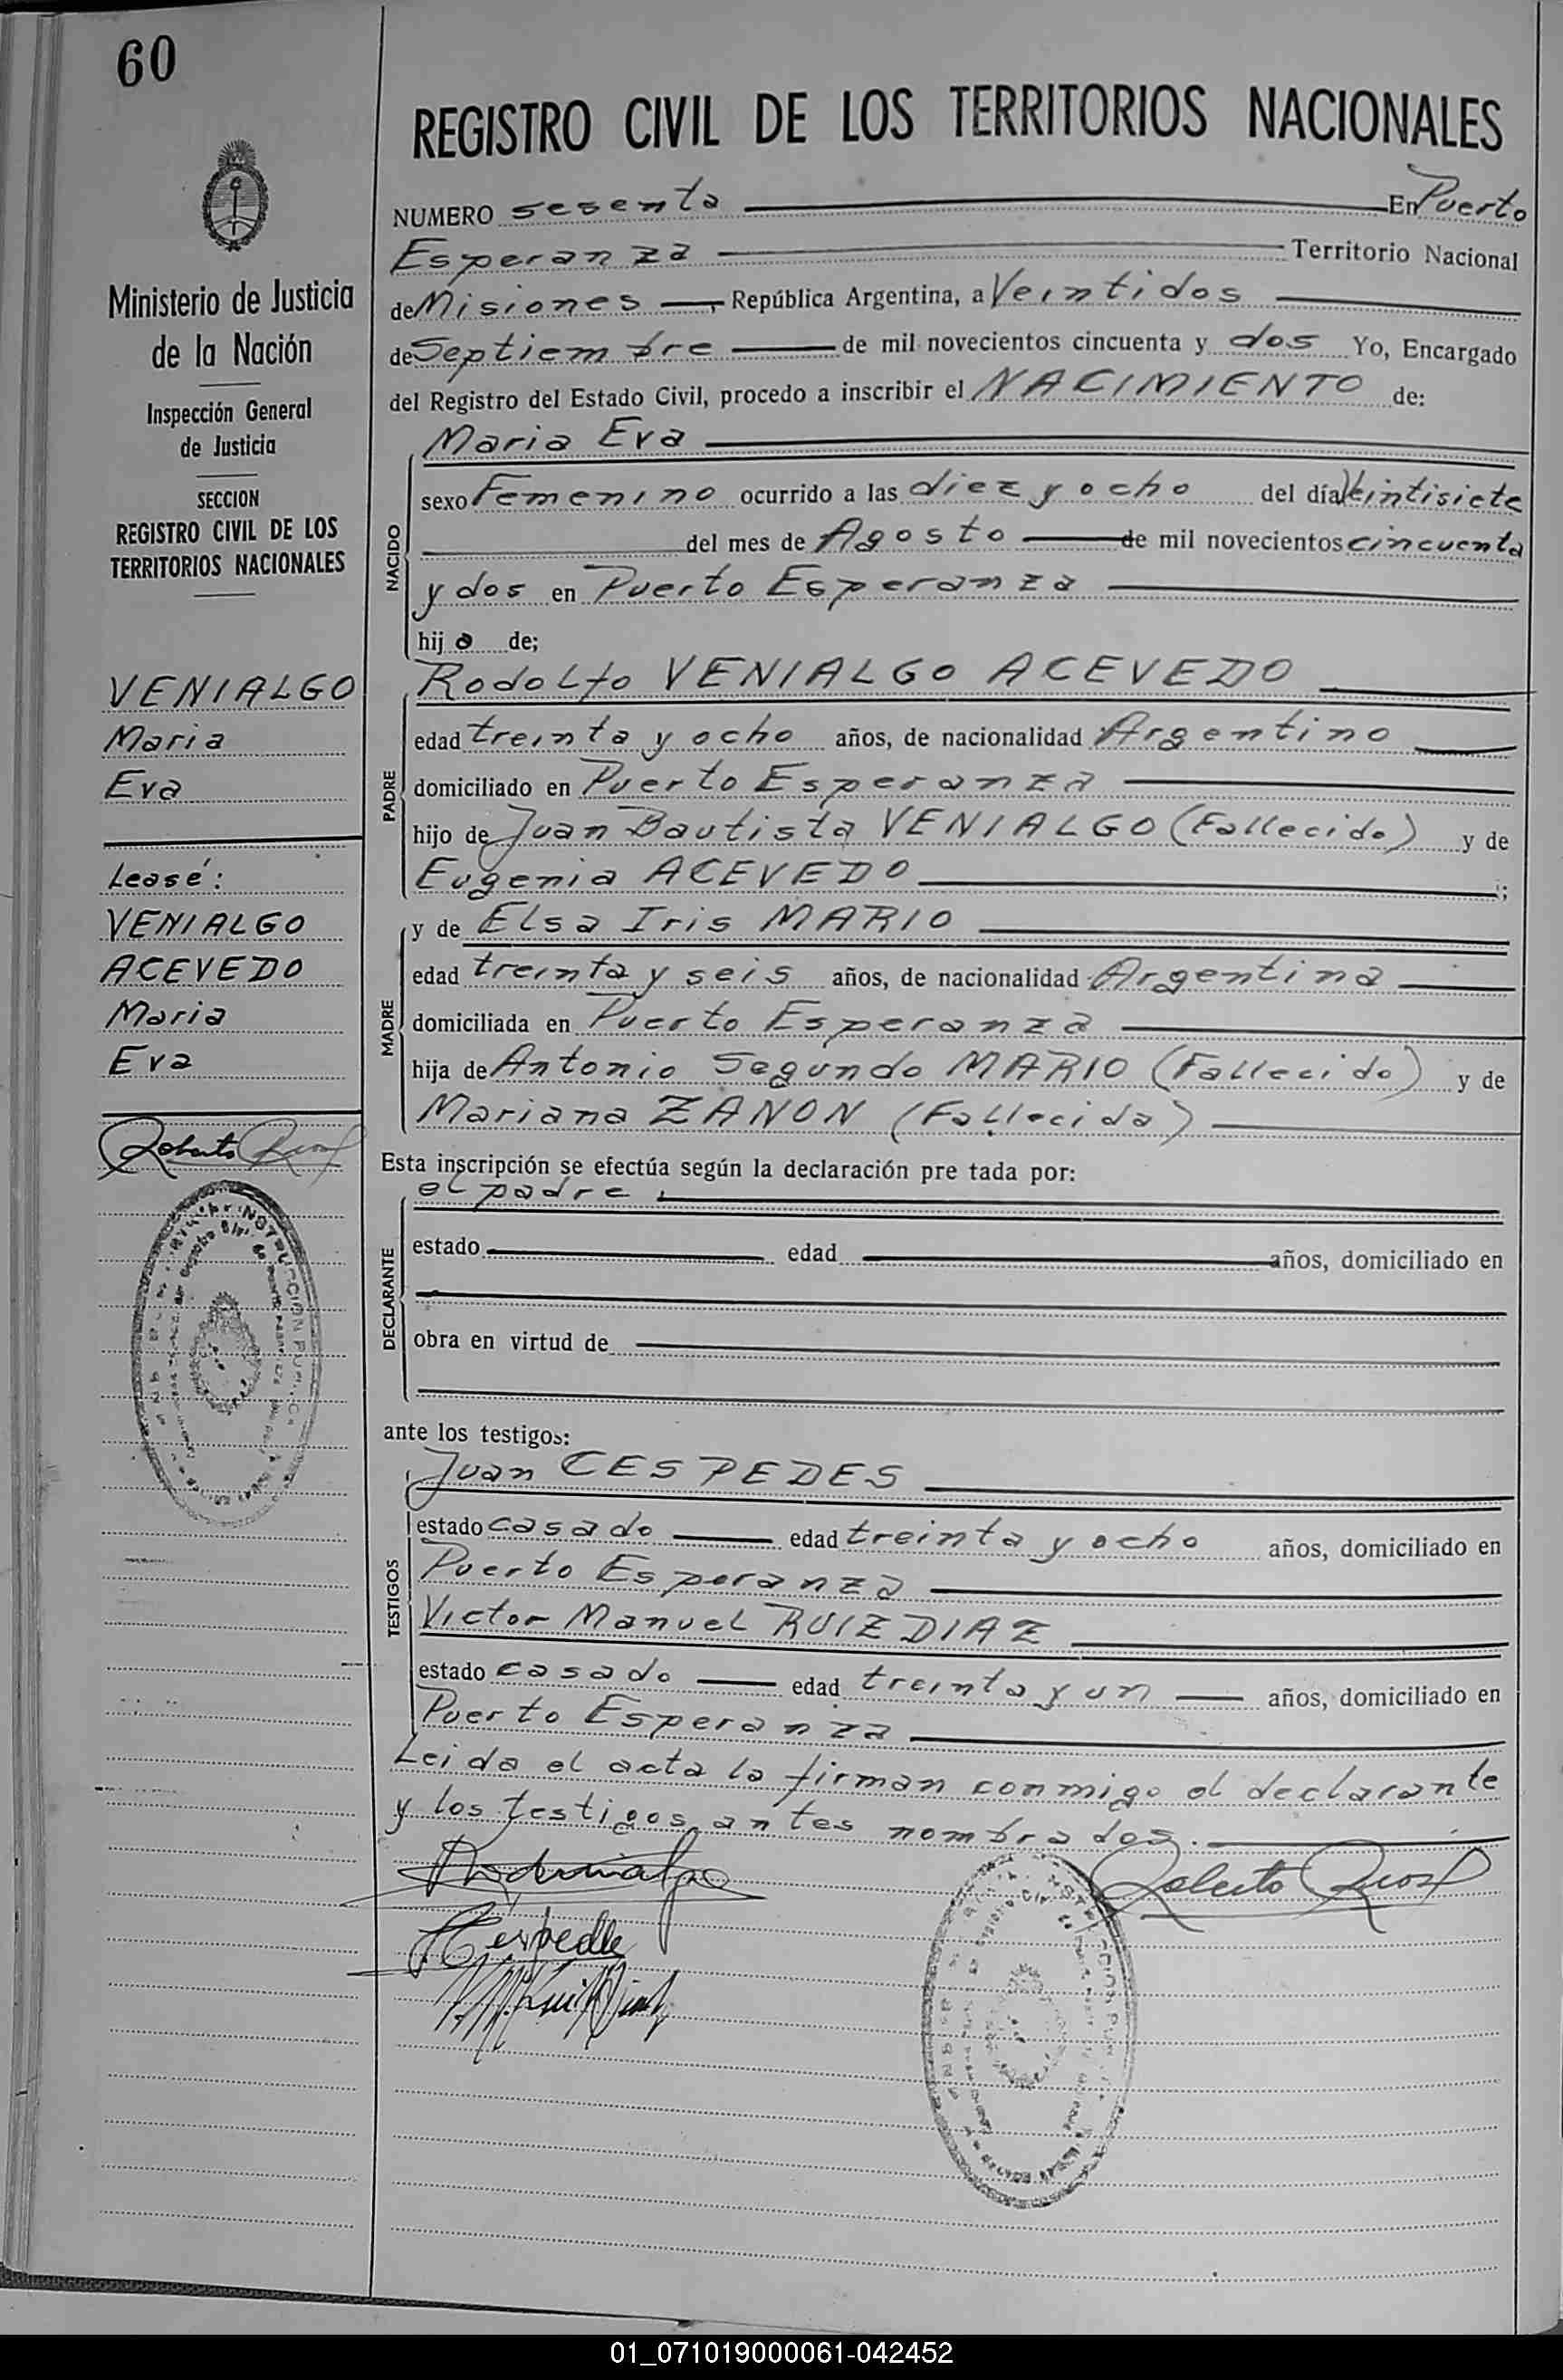 60
Ministerio de Justicia
de la Nación
Inspección General
de Justicia
SECCION
REGISTRO CIVIL DE LOS
TERRITORIOS NACIONALES
VENIALGO
Maria
Eva
Leasé:
VENIALGO
ACEVEDO
Maria
Eva
Roberto
REGISTRO CIVIL DE LOS TERRITORIOS NACIONALES
NUMERO sesenta En Puerto
Esperanza Territorio Nacional
de Misiones República Argentina, a Veintidos
de Septiembre de mil novecientos cincuenta y dos Yo, Encargado
del Registro del Estado Civil, procedo a inscribir el NACIMIENTO de:
NACIDO
Maria Eva
sexo Femenino ocurrido a las diez y ocho del día Veintisiete
del mes de Agosto de mil novecientos cincuenta
y dos en Puerto Esperanza
hija de;
PADRE
Rodolfo VENIALGO ACEVEDO
edad treinta y ocho años, de nacionalidad Argentino
domiciliado en Puerto Esperanza
hijo de Juan Bautista VENIALGO (Fallecido) y de
Eugenia ACEVEDO ;
MADRE
y de Elsa Iris MARIO
edad treinta y seis años, de nacionalidad Argentina
domiciliada en Puerto Esperanza
hija de Antonio Segundo MARIO (Fallecido) y de
Mariana ZANON (Fallecida)
Esta inscripción se efectúa según la declaración pre tada por:
DECLARANTE
el padre
estado edad años, domiciliado en
obra en virtud de
ante los testigos:
TESTIGOS
Juan CESPEDES
estado casado edad treinta y ocho años, domiciliado en
Puerto Esperanza
Victor Manuel RUIZ DIAZ
estado casado edad treinta y un años, domiciliado en
Puerto Esperanza
Leida el acta la firman conmigo el declarante
y los testigos antes nombrados.
Roberto
01_071019000061-042452